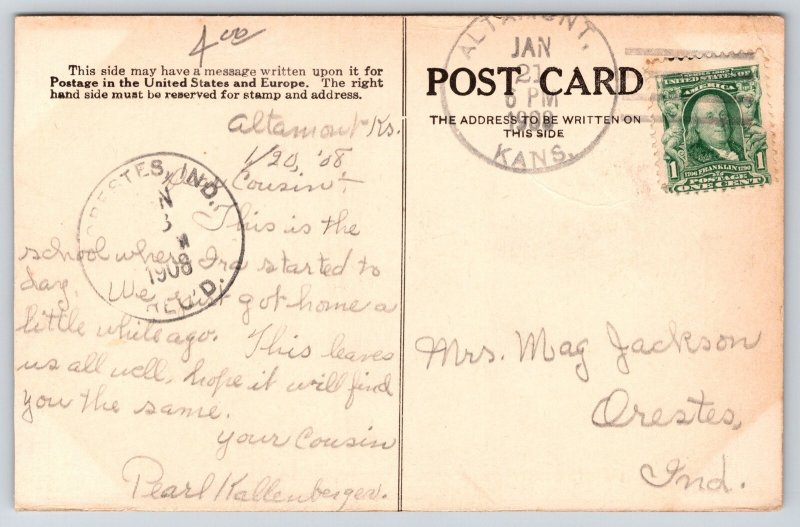 4 00
This side may have a message written upon it for
Postage in the United States and Europe. The right
hand side must be reserved for stamp and address.
Altamont Ks.
1/20, '08
Dear Cousin:-
This is the
school where Ira started to
day. We just got home a
little while ago. This leaves
us all well, hope it will find
you the same.
your Cousin
Pearl Kallenberger.
ORESTES, IND.
1908
REC'D.
POST CARD
THE ADDRESS TO BE WRITTEN ON
THIS SIDE
ALTAMONT,
JAN
21
6 PM
1908
KANS.
UNITED STATES OF
AMERICA
1706 FRANKLIN 1790
1 POSTAGE 1
ONE CENT
Mrs. Mag Jackson
Orestes,
Ind.